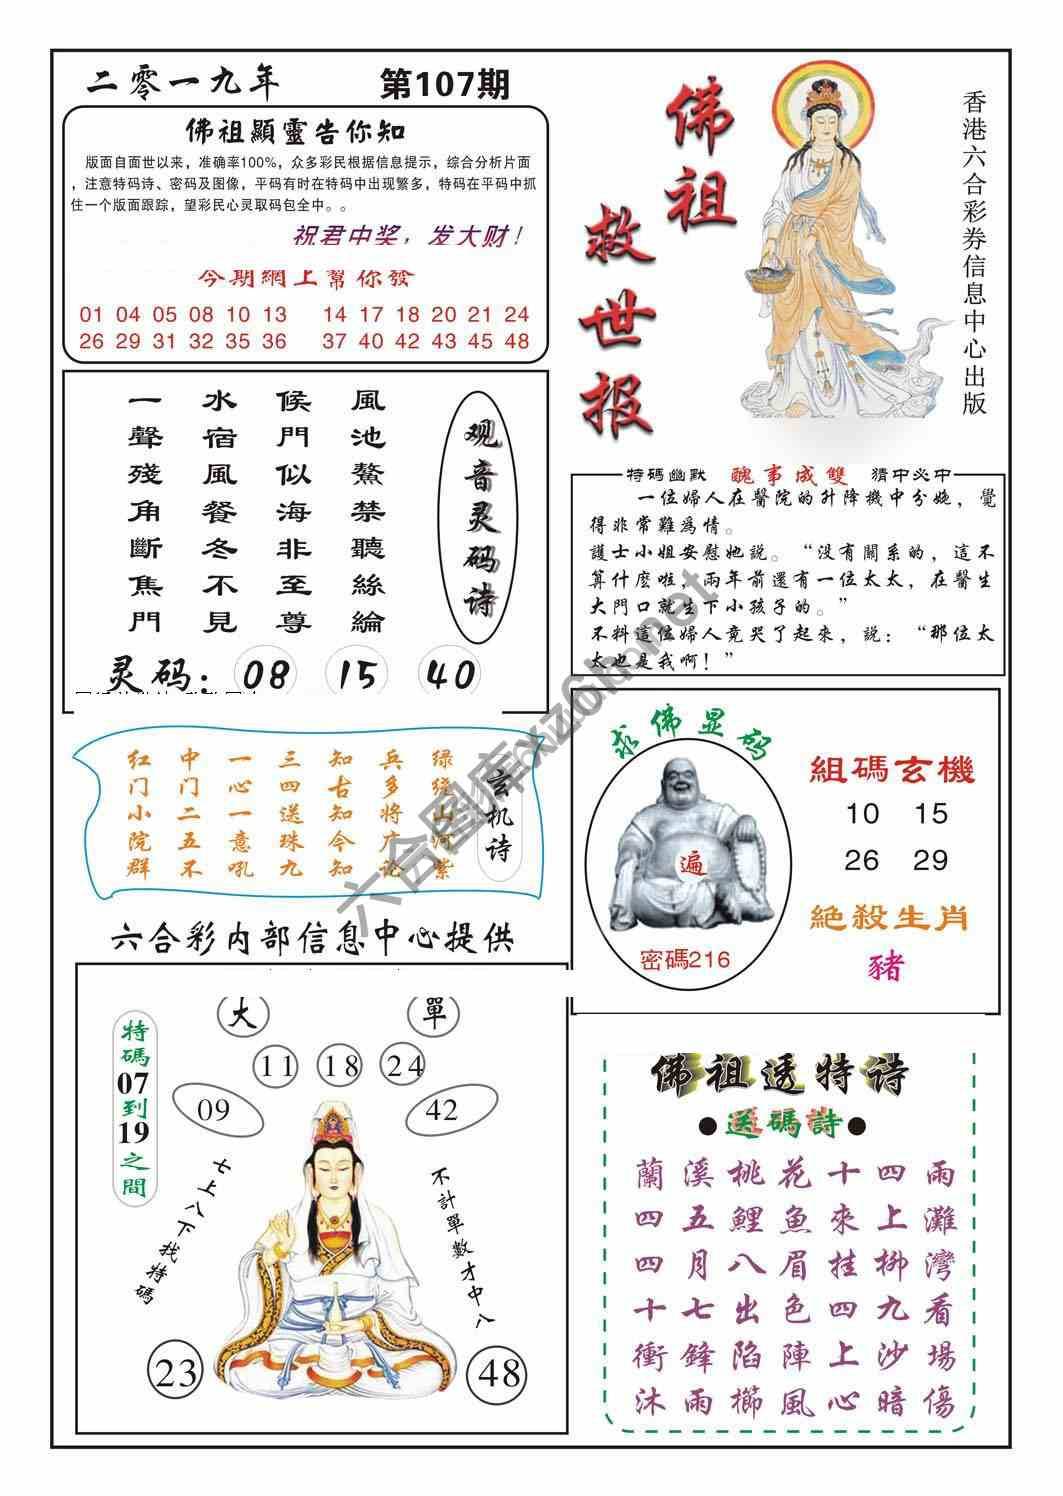 二零一九年 第107期
佛祖顯靈告你知
版面自面世以来，准确率100%，众多彩民根据信息提示，综合分析片面
，注意特码诗、密码及图像，平码有时在特码中出现繁多，特码在平码中抓
住一个版面跟踪，望彩民心灵取码包全中。。
祝君中奖，发大财！
今期網上幫你發
01 04 05 08 10 13 14 17 18 20 21 24
26 29 31 32 35 36 37 40 42 43 45 48
佛祖
救世报
香港六合彩券信息中心出版
观音灵码诗
風池鰲禁聽絲綸
侯門似海非至尊
水宿風餐冬不見
一聲殘角斷焦門
灵码：08 15 40
特碼幽默 醜事成雙 猜中必中
一位婦人在醫院的升降機中分娩，覺
得非常難爲情。
護士小姐安慰她說。“没有關系的，這不
算什麽啦，兩年前還有一位太太，在醫生
大門口就生下小孩子的。”
不料這位婦人竟哭了起來，説：“那位太
太也是我啊！”
玄机诗
绿绕山河紫
兵多将广论
知古知今知
三四送珠九
一心一意吼
中门二五不
红门小院群
求佛显码
遍
密碼216
組碼玄機
10 15
26 29
絶殺生肖
豬
六合彩内部信息中心提供
大 單
11 18 24
09 42
特碼07到19之間
七上八下找特碼
不計單數才中八
23 48
佛祖透特诗
●送碼詩●
蘭溪桃花十四雨
四五鯉魚來上灘
四月八眉挂柳灣
十七出色四九看
衝鋒陷陣上沙場
沐雨櫛風心暗傷
六合图库xz6h.net